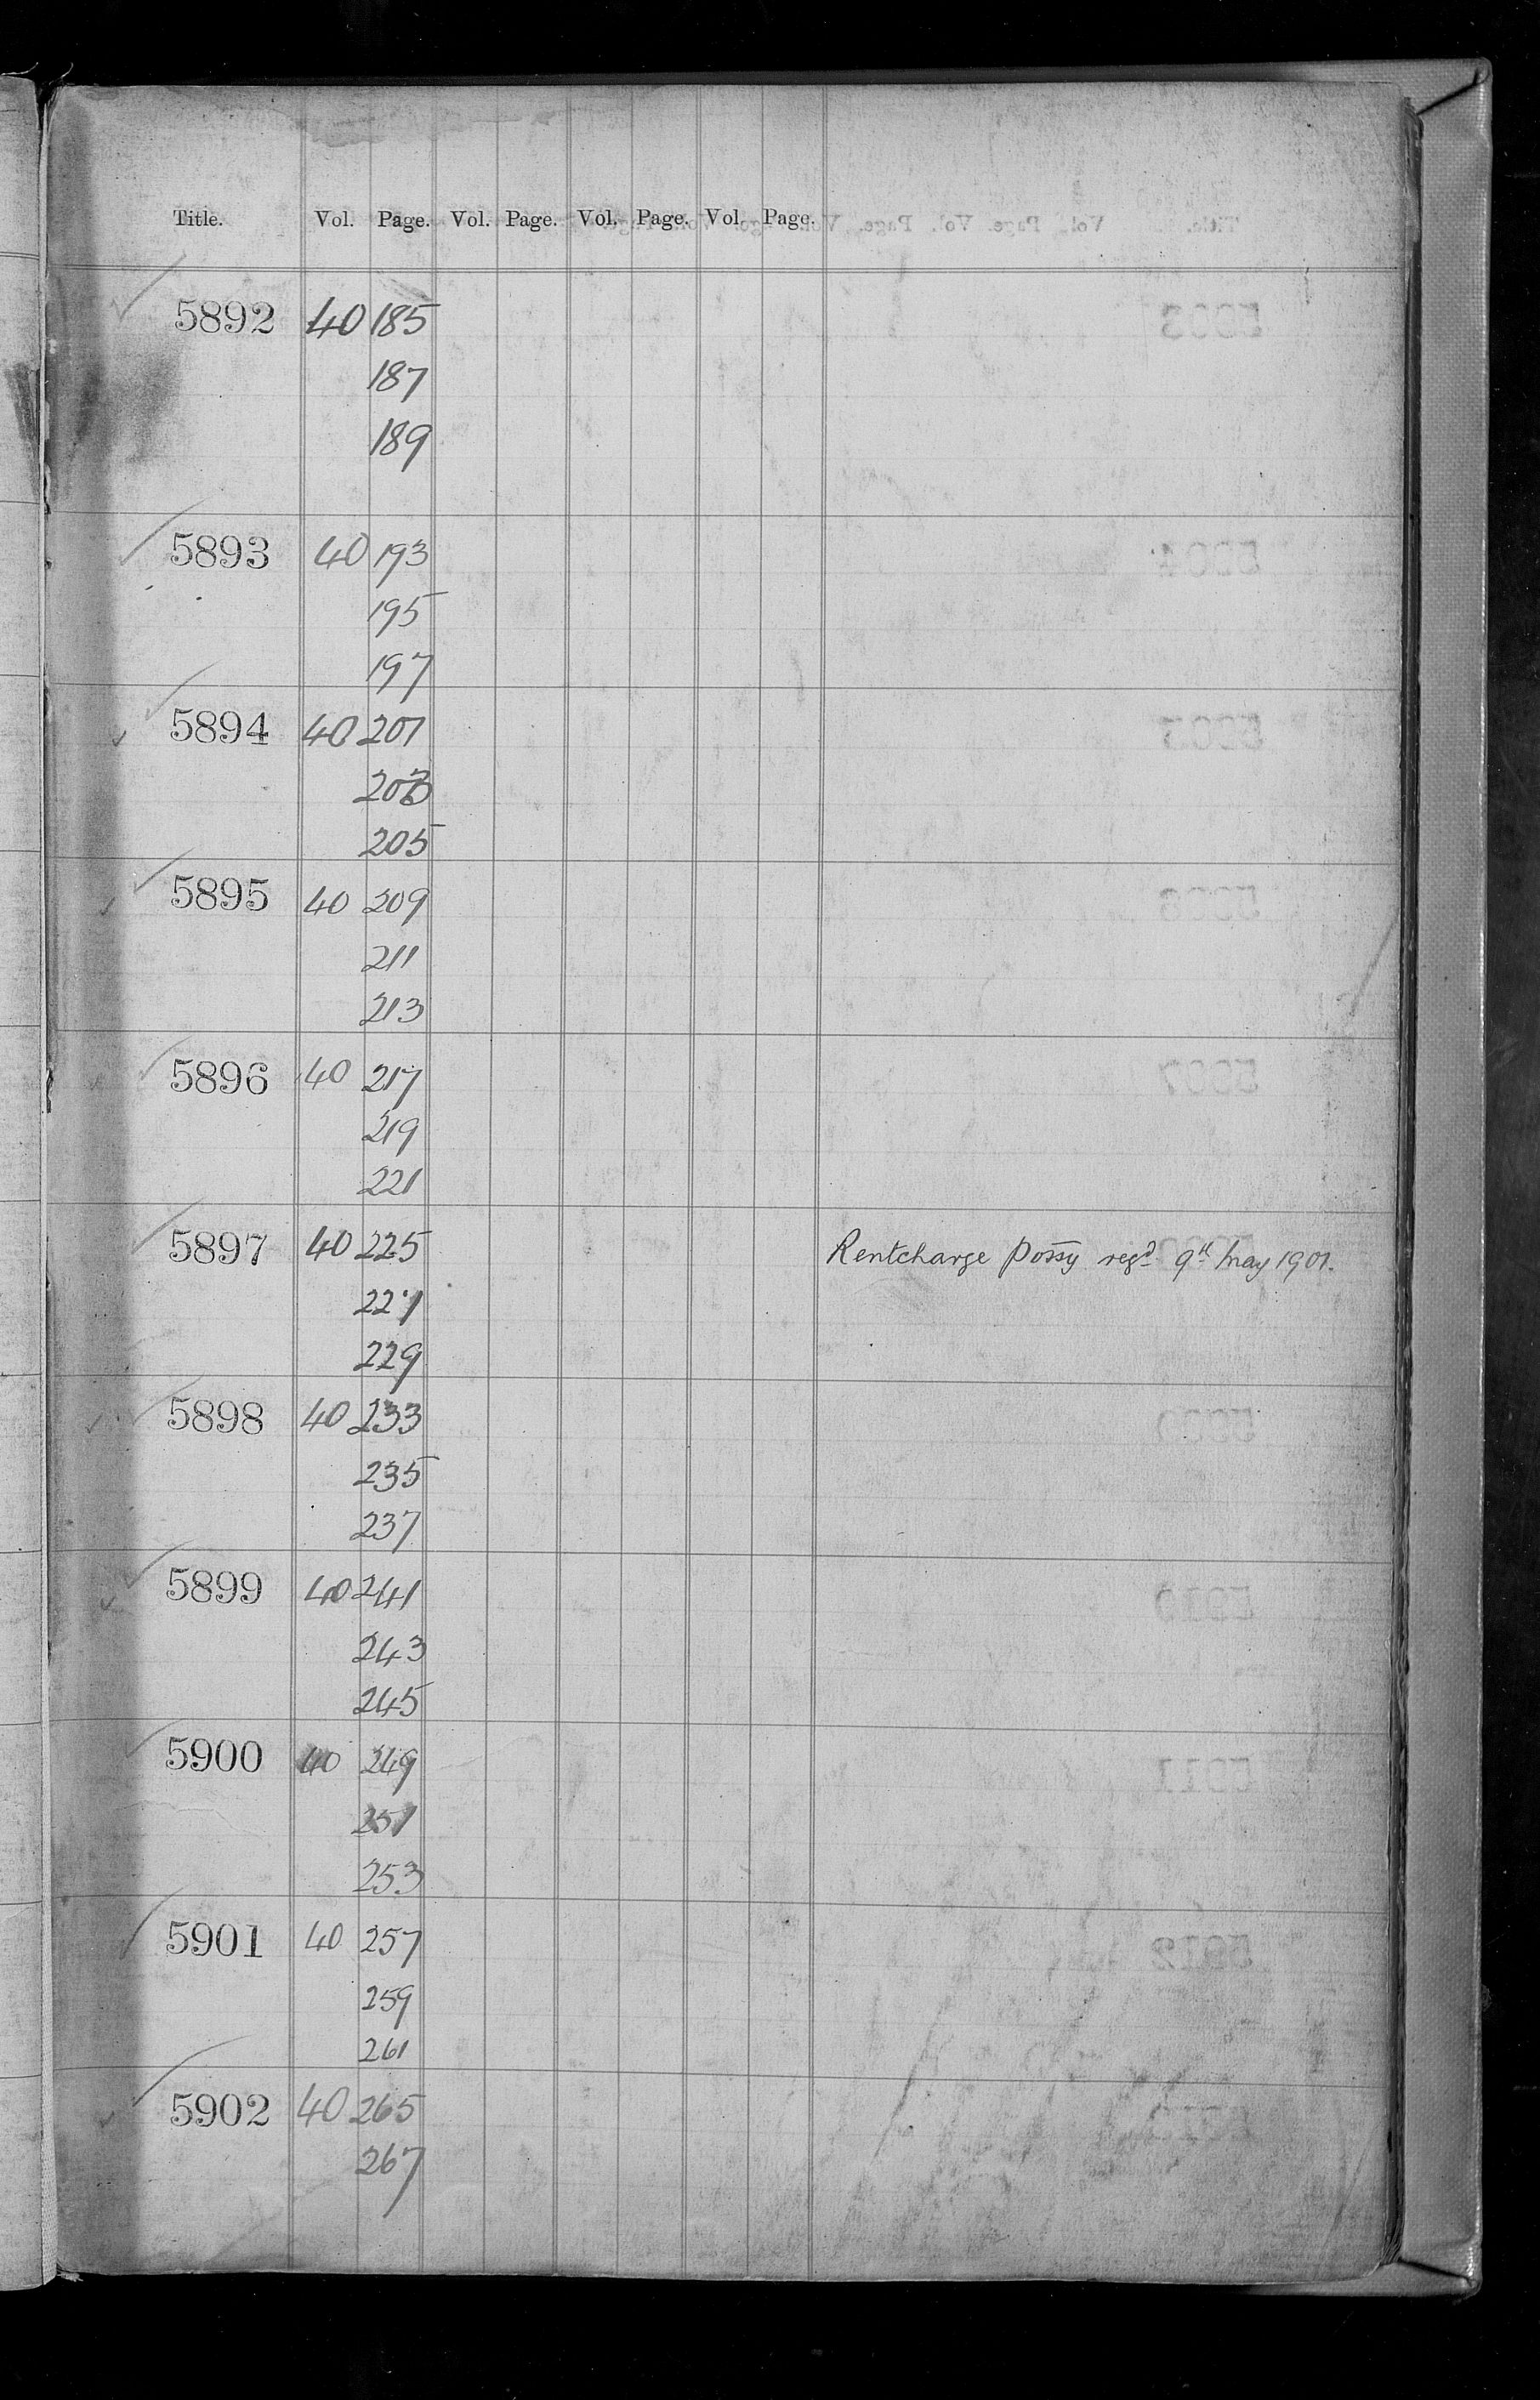 Title. Vol. Page. Vol. Page. Vol. Page. Vol. Page.
5892 40 185
187
189
5893 40 193
195
197
5894 40 201
203
205
5895 40 209
211
213
5896 40 217
219
221
5897 40 225 Rentcharge possy regd 9th May 1901.
227
229
5898 40 233
235
237
5899 40 241
243
245
5900 40 249
251
253
5901 40 257
259
261
5902 40 265
267